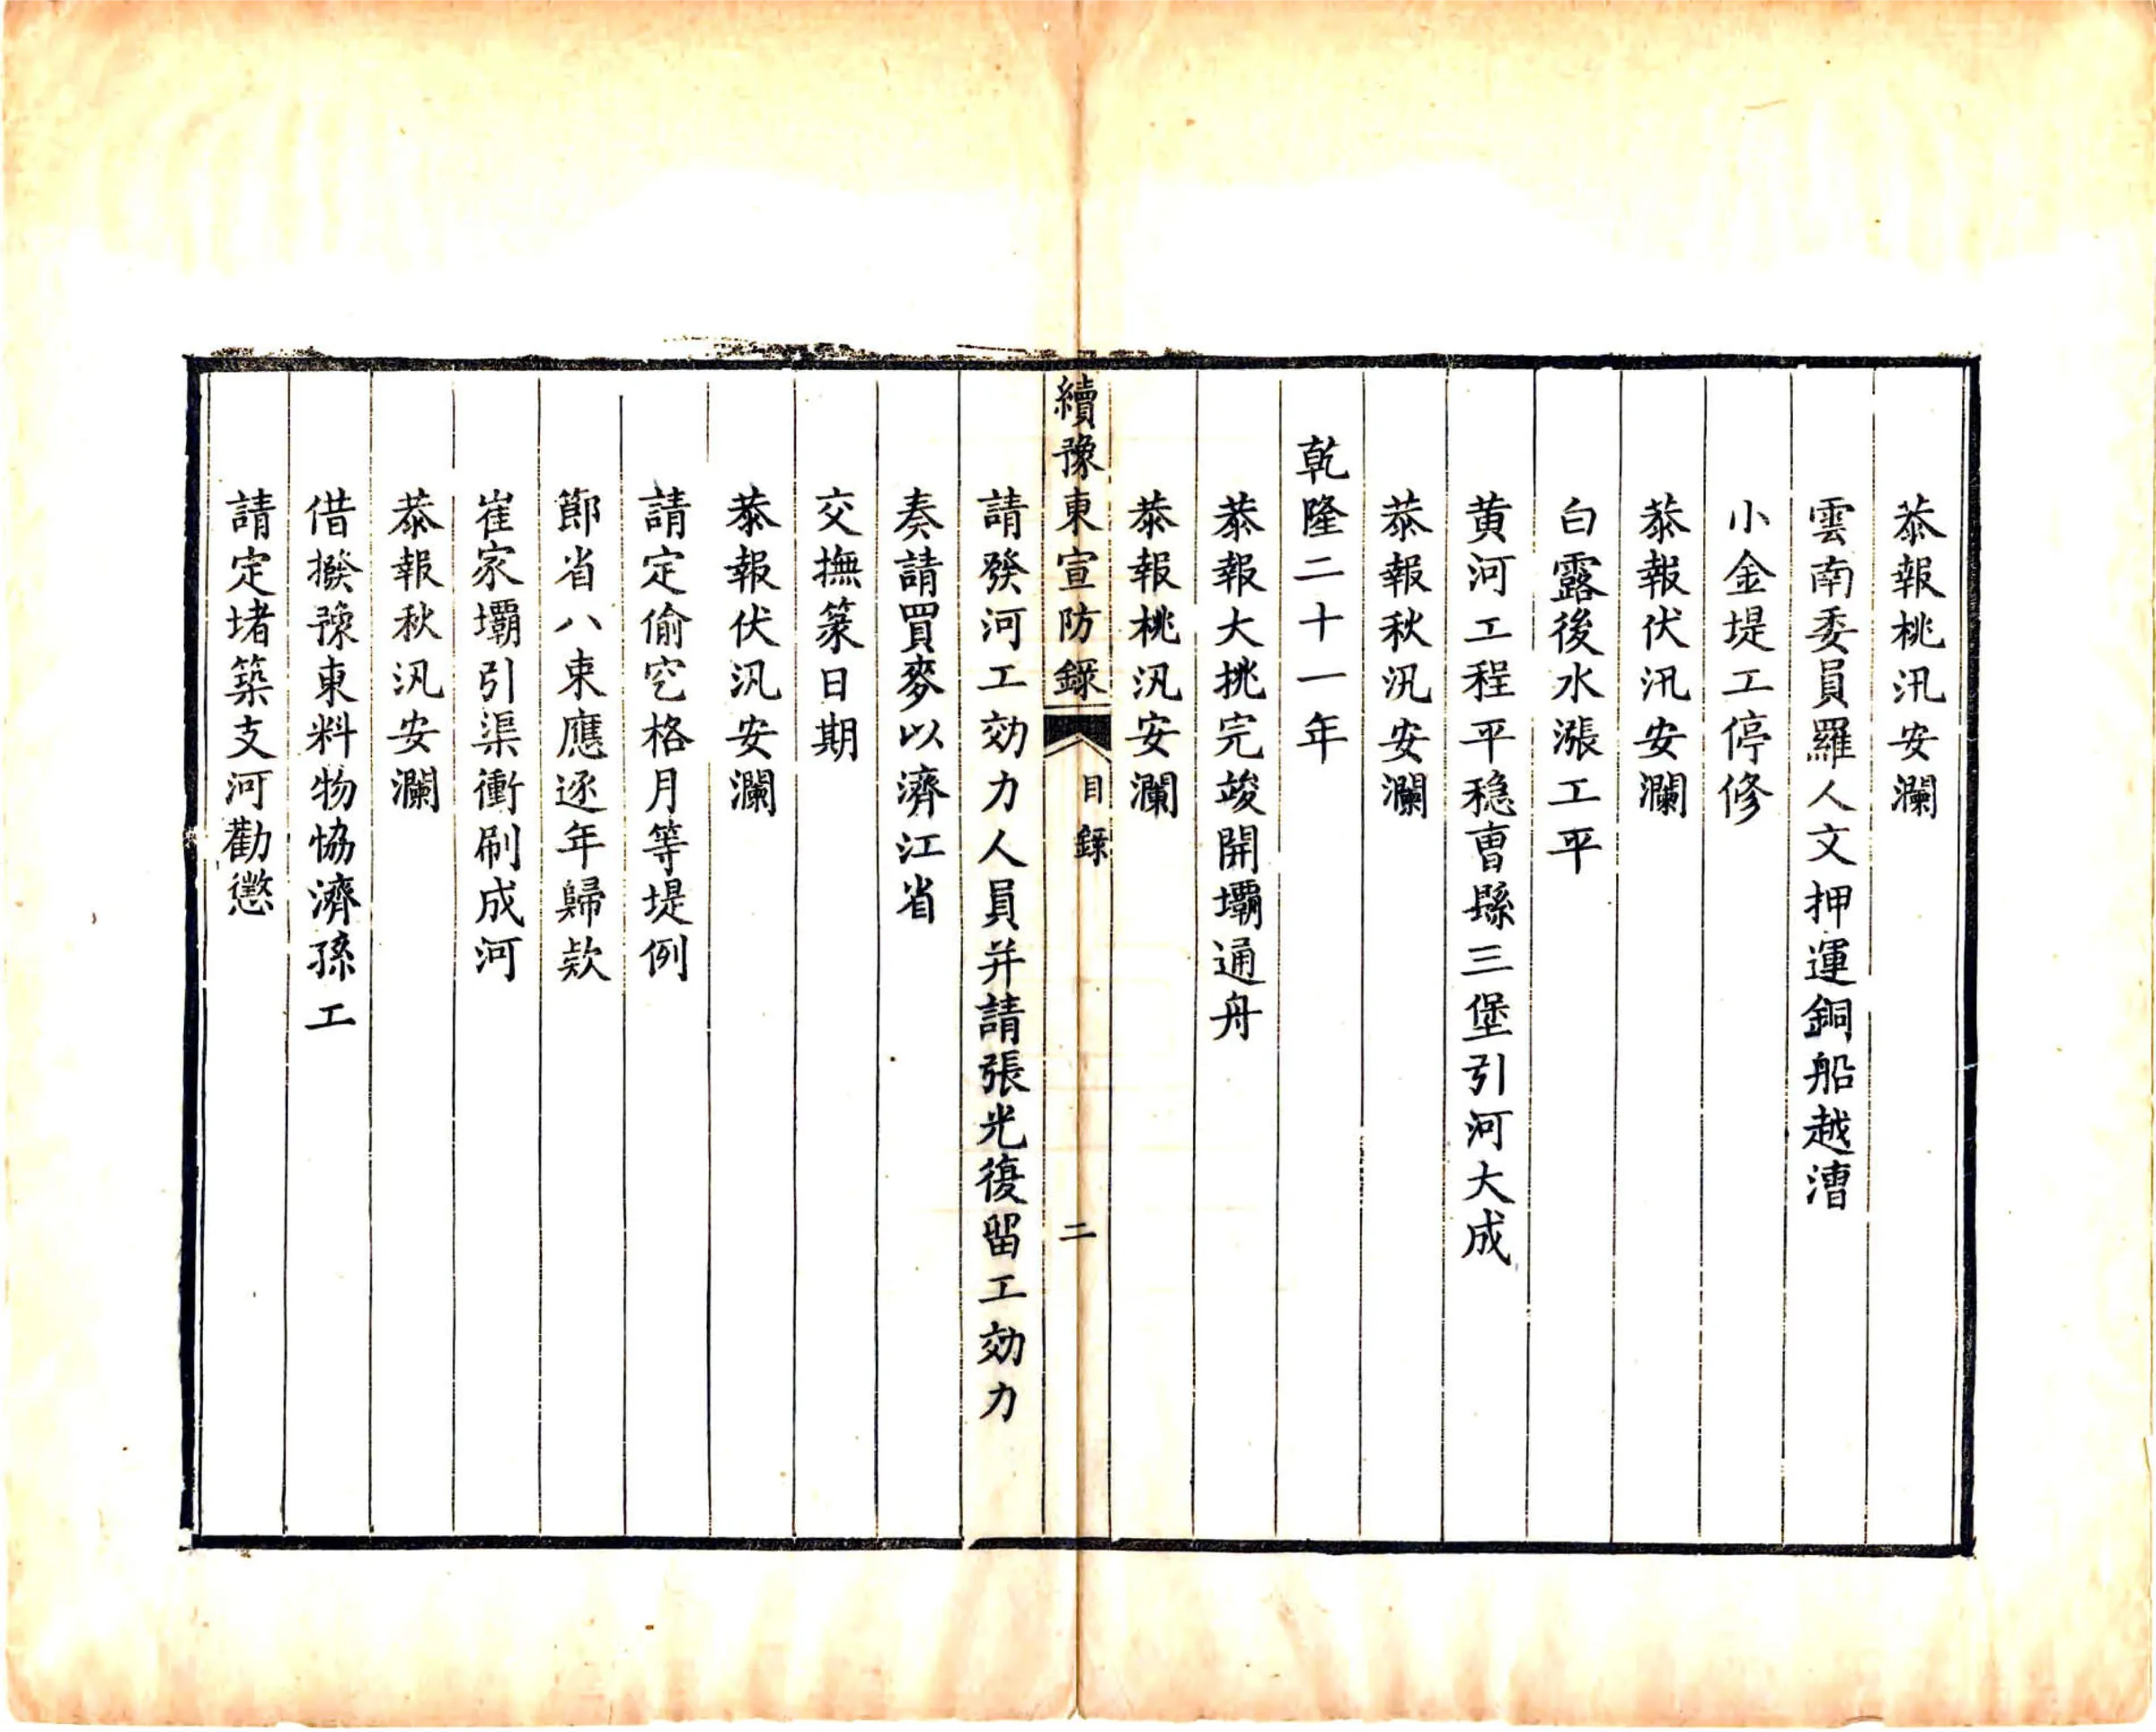 恭報桃汛安瀾
雲南委員羅人文押運銅船越漕
小金堤工停修
恭報伏汛安瀾
白露後水漲工平
黄河工程平穏曹縣三堡引河大成
恭報秋汛安瀾
乾隆二十一年
恭報大挑完竣開壩通舟
恭報桃汛安瀾
續豫東宣防錄
目錄
二
請發河工効力人員并請張光復留工効力
奏請買麥以濟江省
交撫篆日期
恭報伏汛安瀾
請定偷空格月等堤例
節省八束應逐年歸欵
崔家壩引渠衝刷成河
恭報秋汛安瀾
借撥豫東料物恊濟孫工
請定堵築支河勸懲